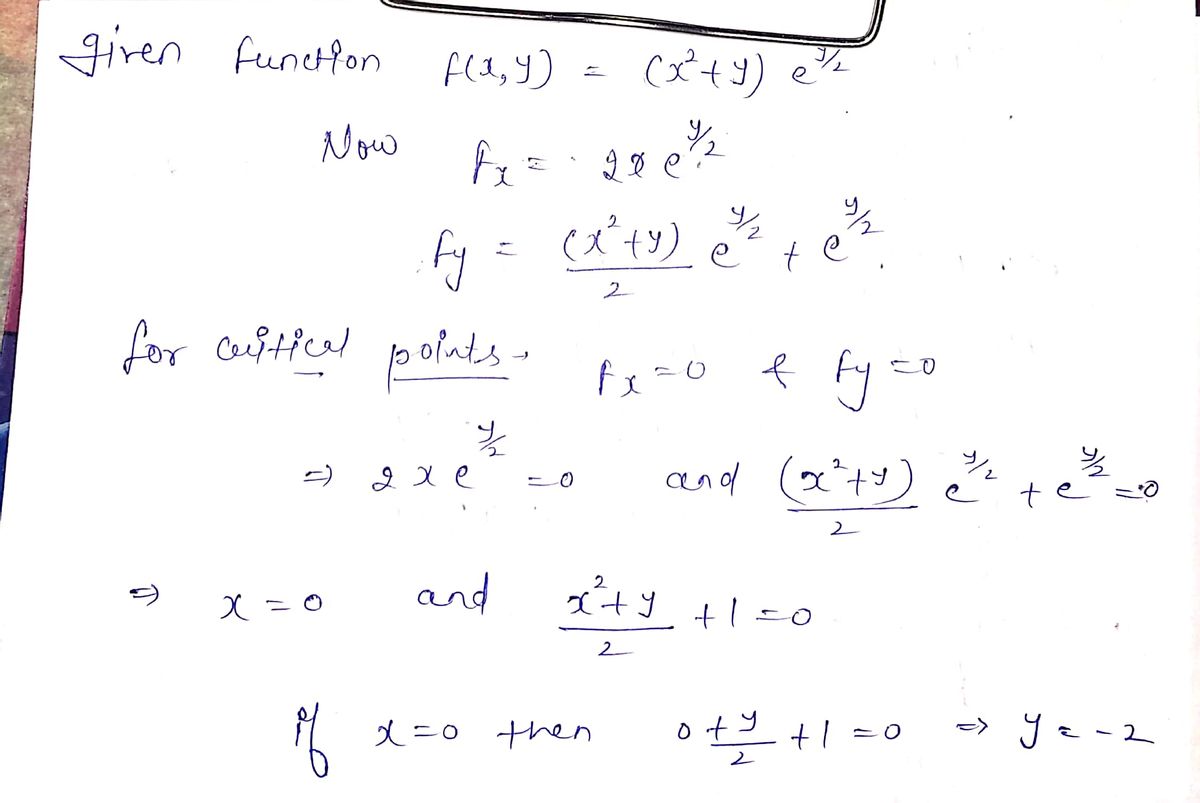 given function f(x,y) = (x²+y) e^{y/2}
Now f_x = 2x e^{y/2}
f_y = (x²+y)/2 e^{y/2} + e^{y/2}.
for critical points, f_x=0 & f_y=0
⇒ 2xe^{y/2} =0 and (x²+y)/2 e^{y/2} + e^{y/2} =0
⇒ x=0 and (x²+y)/2 +1=0
if x=0 then (0+y)/2 +1=0 ⇒ y=-2